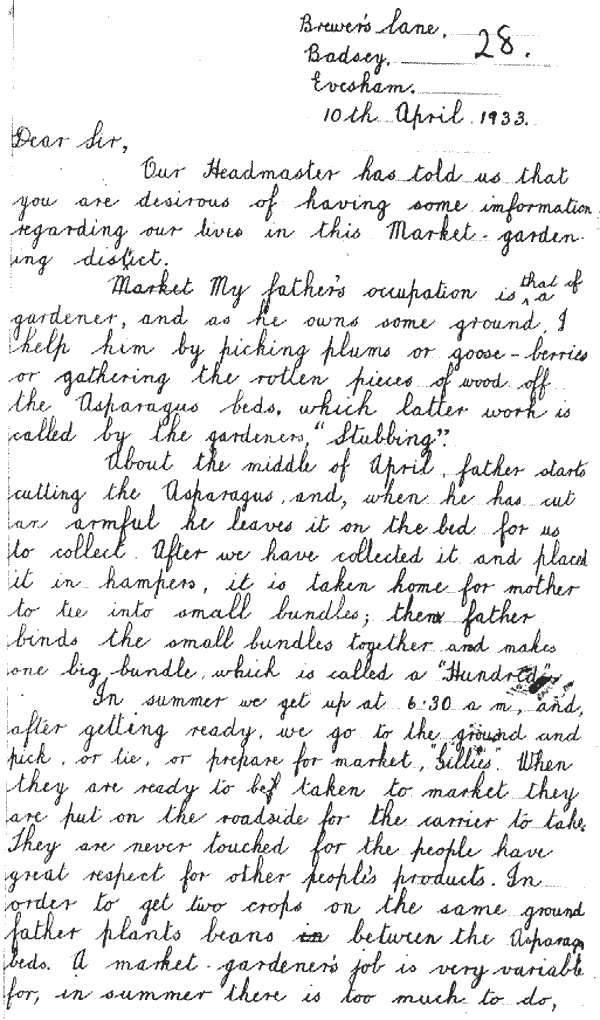 Brewer's Lane,
28.
Badsey,
Evesham.
10th April 1933.
Dear Sir,
Our Headmaster has told us that
you are desirous of having some imformation
regarding our lives in this Market-garden-
ing distict.
Market My father's occupation is that of a
gardener, and as he owns some ground, I
help him by picking plums or goose-berries
or gathering the rotten pieces of wood off
the Asparagus beds, which latter work is
called by the gardeners, "Stubbing".
About the middle of April, father starts
cutting the Asparagus, and, when he has cut
an armful he leaves it on the bed for us
to collect. After we have collected it and placed
it in hampers, it is taken home for mother
to tie into small bundles; then father
binds the small bundles together and makes
one big bundle, which is called a "Hundred".
In summer we get up at 6.30 a m, and,
after getting ready, we go to the ground and
pick, or tie, or prepare for market, "Gillies". When
they are ready to be taken to market they
are put on the roadside for the carrier to take.
They are never touched for the people have
great respect for other people's products. In
order to get two crops on the same ground
father plants beans in between the Asparagus
beds. A market-gardener's job is very variable
for, in summer there is too much to do,